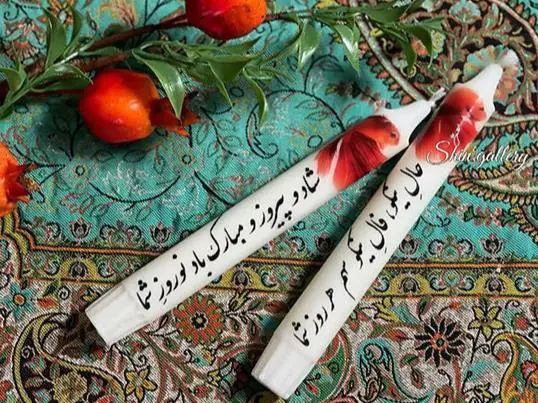 شاد و پیروز و مبارک باد نوروز شما
حال نیکو، فال نیکو هم هر روز شما
Shin.gallery